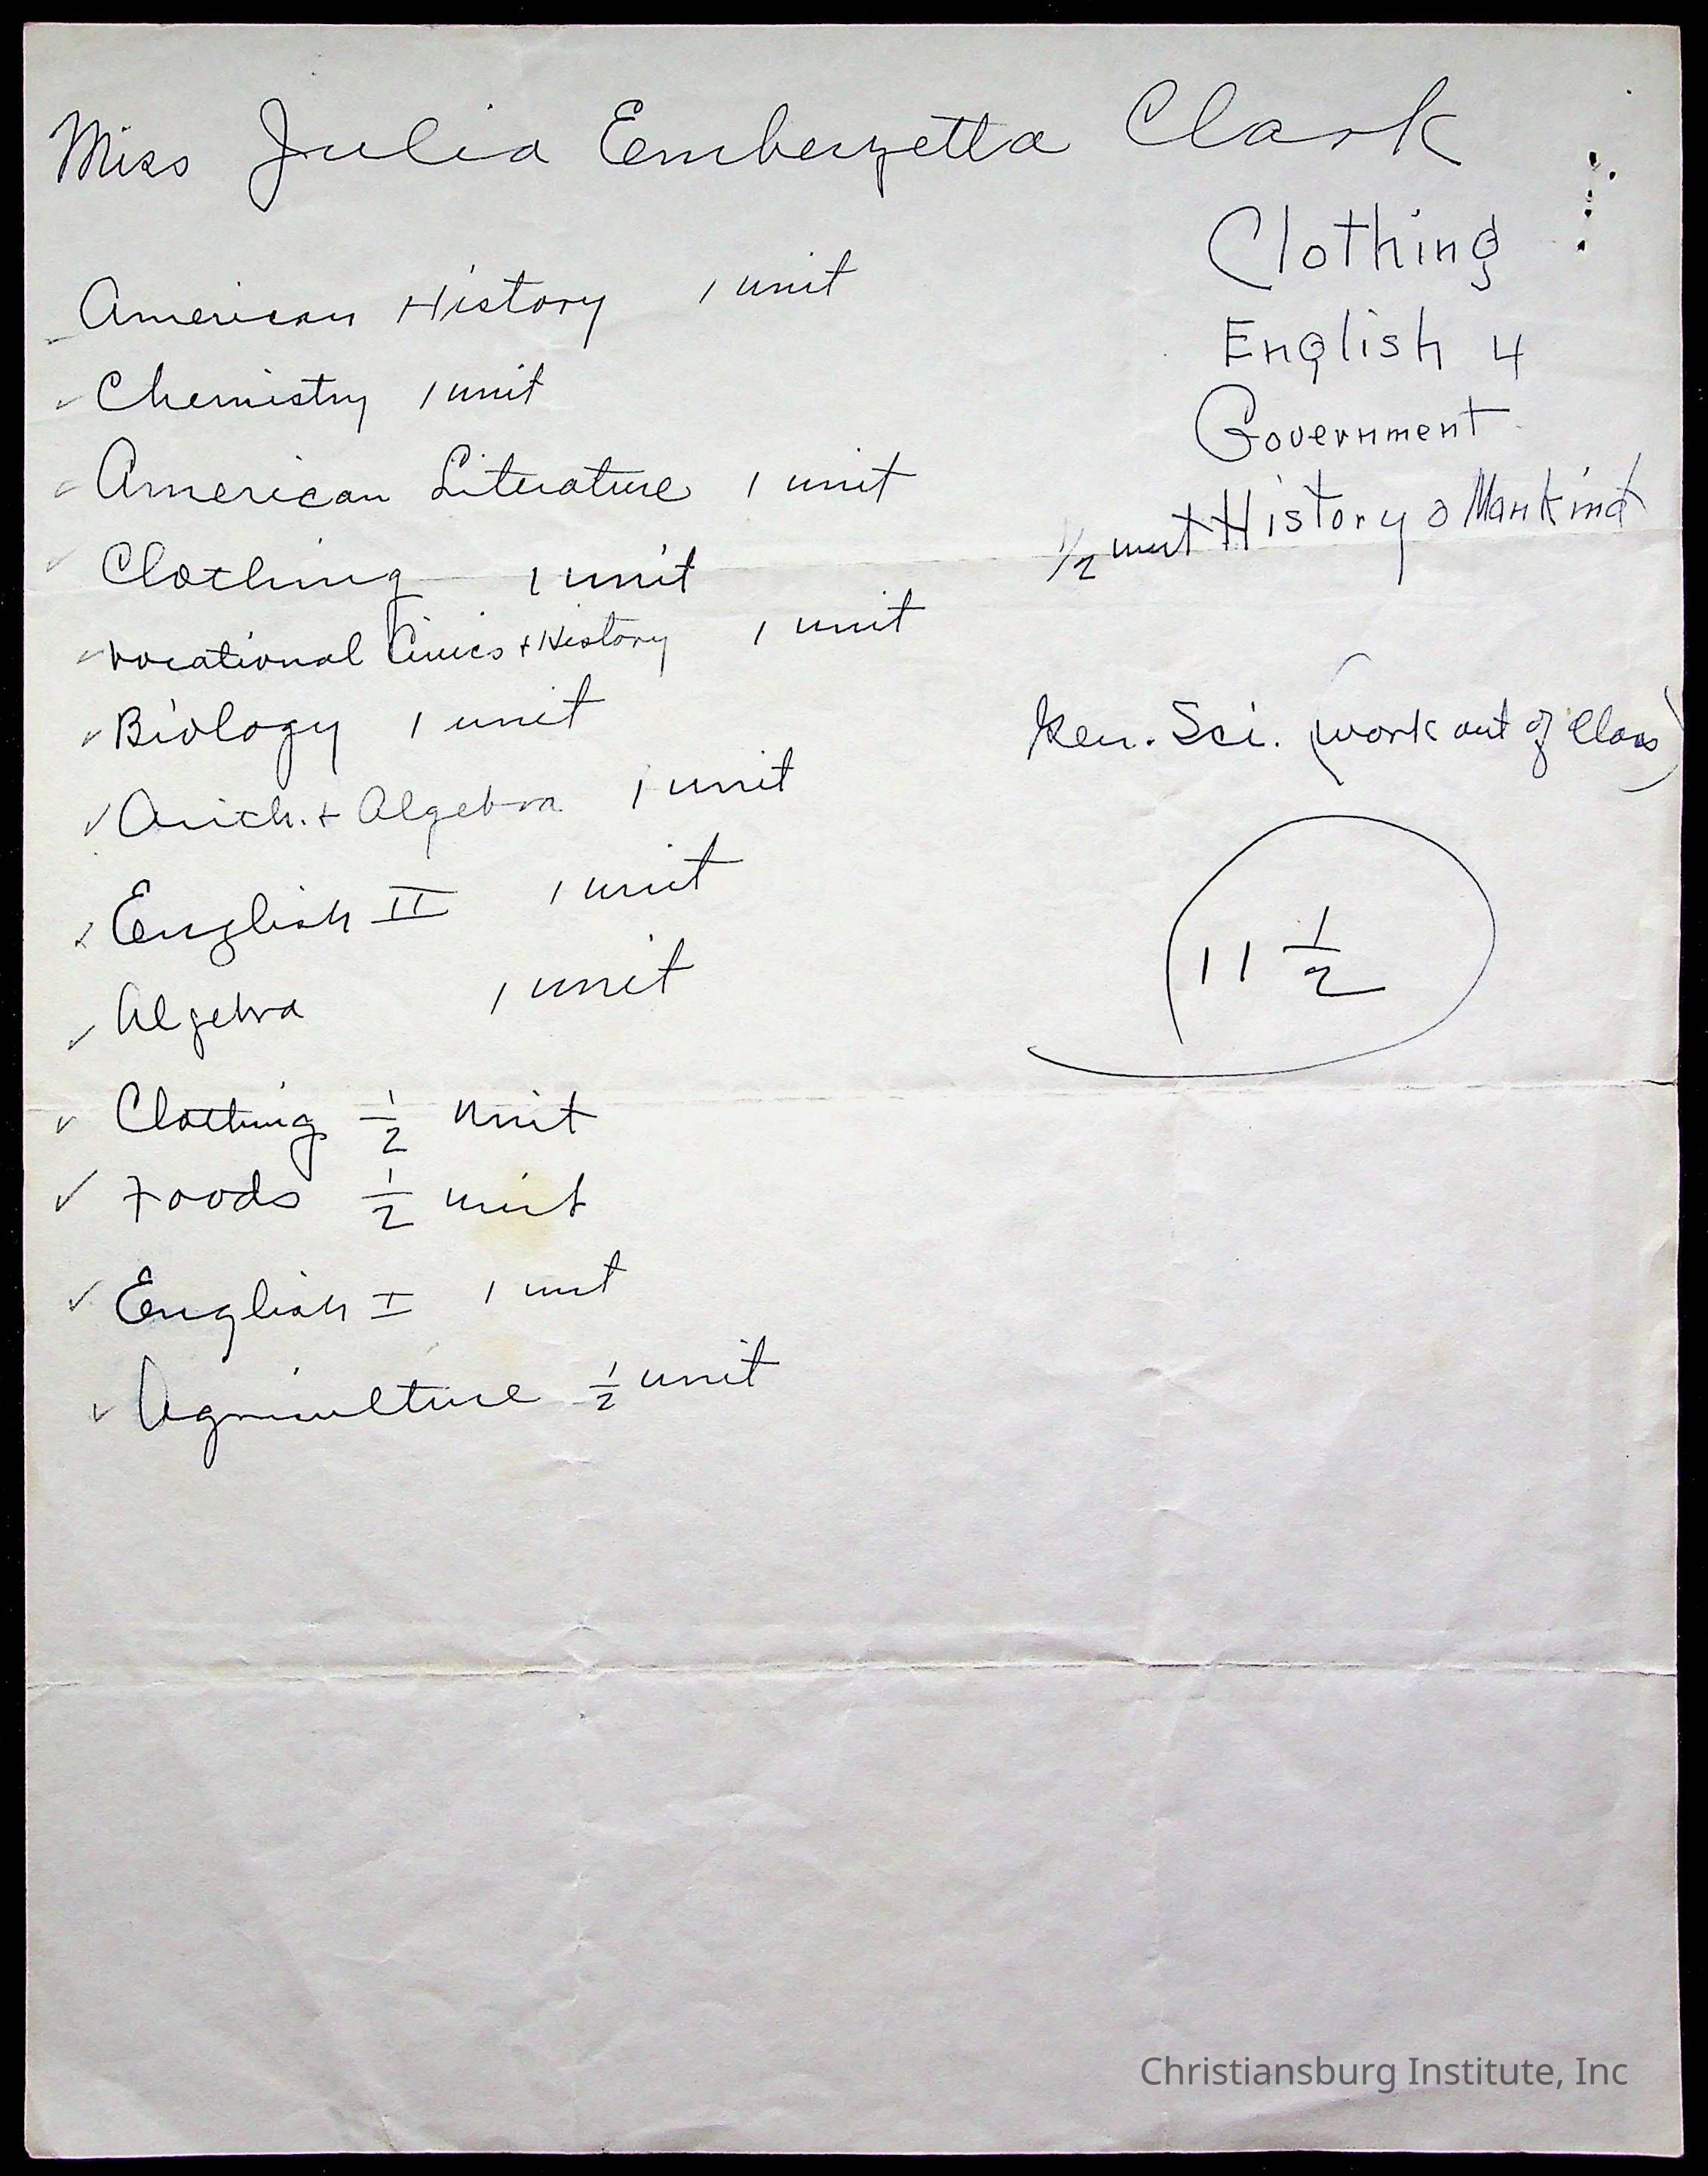 Miss Julia Emberzetta Clark
American History 1 unit
Chemistry 1 unit
American Literature 1 unit
Clothing 1 unit
Vocational Civics + History 1 unit
Biology 1 unit
Arith. + Algebra 1 unit
English II 1 unit
Algebra 1 unit
Clothing 1/2 unit
Foods 1/2 unit
English I 1 unit
Agriculture 1/2 unit
Clothing
English 4
Government
1/2 unit History o Mankind
Gen. Sci. (work out of Class)
11 1/2
Christiansburg Institute, Inc